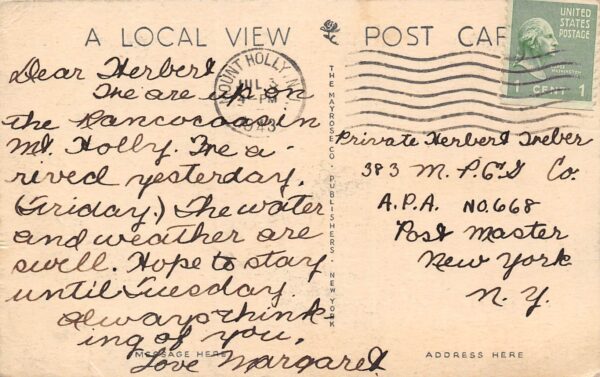 A LOCAL VIEW
POST CAR
UNITED
STATES
POSTAGE
WASHINGTON
1 CENT 1
MOUNT HOLLY, N.
JUL 3
PM
1943
THE MAYROSE CO. PUBLISHERS. NEW YORK
Dear Herbert
We are up on
the Rancocas in
Mt. Holly. We a-
rived yesterday.
(Friday.) The water
and weather are
swell. Hope to stay
until Tuesday.
Always think-
ing of you,
Love Margaret
MESSAGE HERE
Private Herbert Treber
383 M.P.E.G Co.
A.P.A. NO. 668
Post Master
New York
N.Y.
ADDRESS HERE